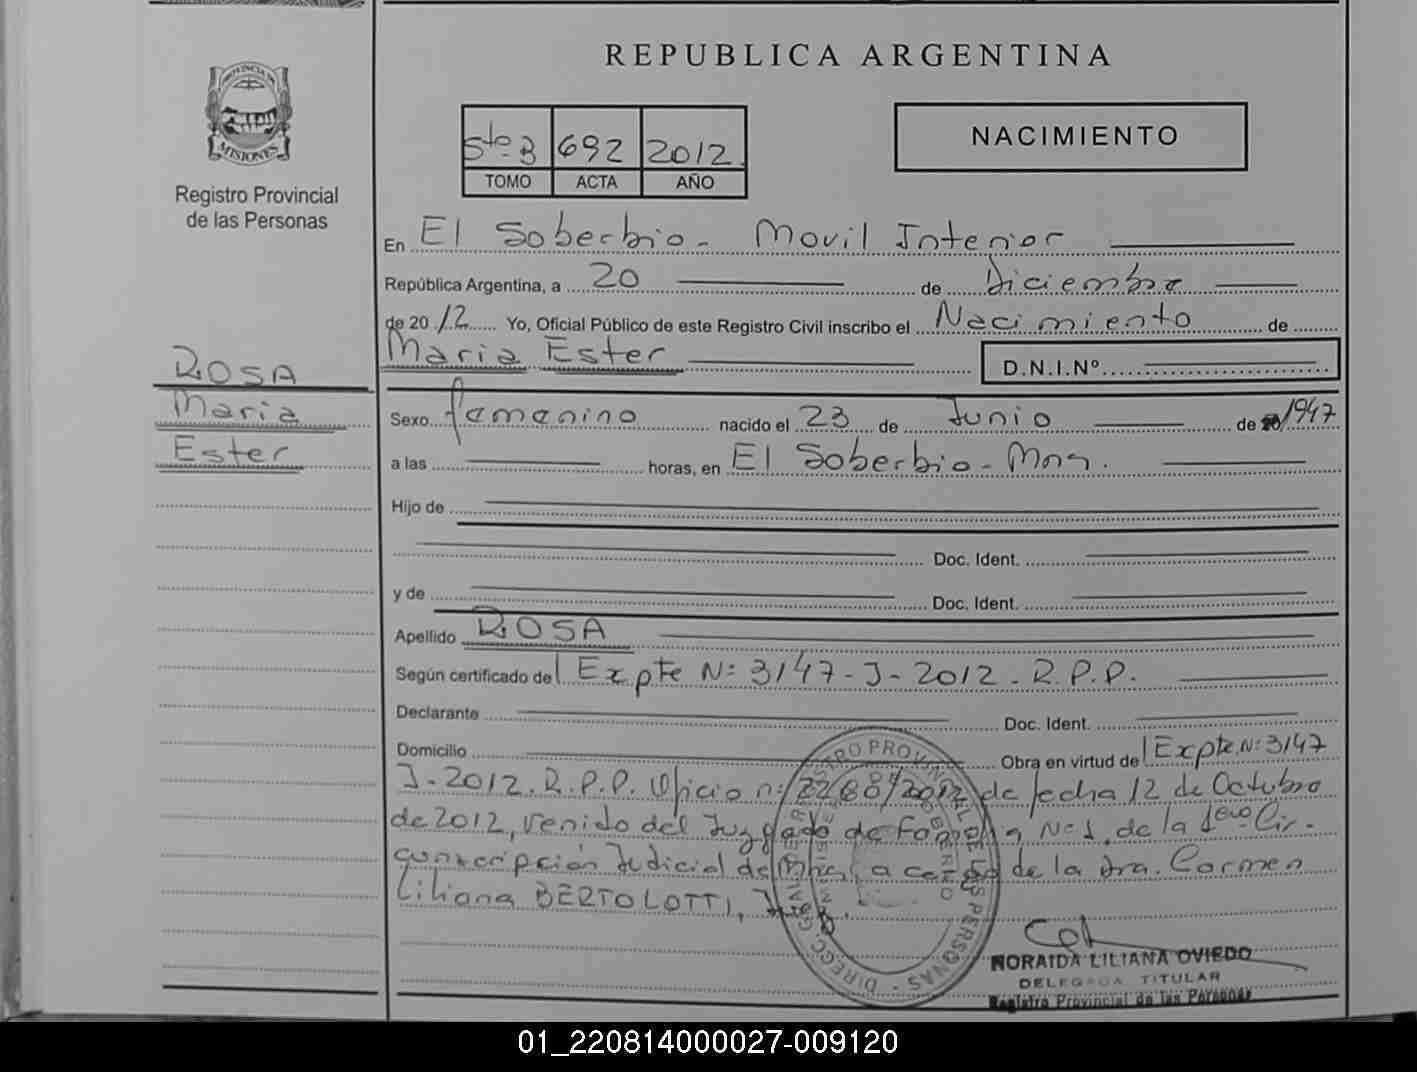 REPUBLICA ARGENTINA
PROVINCIA DE
MISIONES
Registro Provincial
de las Personas
Sto-B 692 2012
TOMO ACTA AÑO
NACIMIENTO
En El Soberbio - Movil Interior
República Argentina, a 20 de Diciembre
de 2012 Yo, Oficial Público de este Registro Civil inscribo el Nacimiento de
Maria Ester D.N.I.Nº
ROSA
Maria
Ester
Sexo femenino nacido el 23 de Junio de 1947
a las horas, en El Soberbio - Mns.
Hijo de
Doc. Ident.
y de Doc. Ident.
Apellido ROSA
Según certificado del Expte N: 3147-J-2012. R.P.P.
Declarante Doc. Ident.
Domicilio Obra en virtud del Expte. N: 3147
J-2012. R.P.P. Oficio n: /2012 de fecha 12 de Octubre
de 2012, venido del Juzgado de Familia Nº 1, de la 1era Cir-
cunscripción Judicial de Mnes, a cargo de la Dra. Carmen
Liliana BERTOLOTTI, Juez.
DIRECC. REGISTRO PROVINCIAL DE LAS PERSONAS
EL SOBERBIO
NORAIDA LILIANA OVIEDO
DELEGADA TITULAR
Registro Provincial de las Personas
01_220814000027-009120